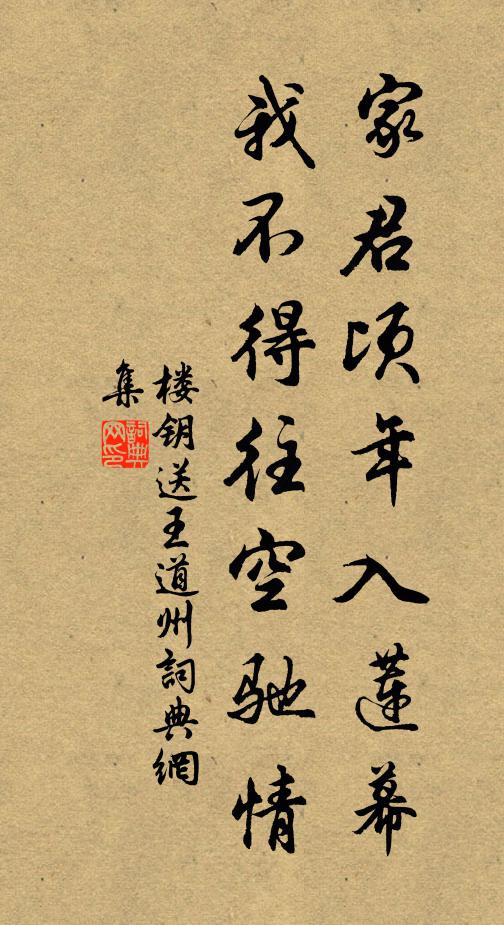 家君頃年入蓮幕
我不得往空馳情
楼钥送王道州詞典網
集
詞典網印